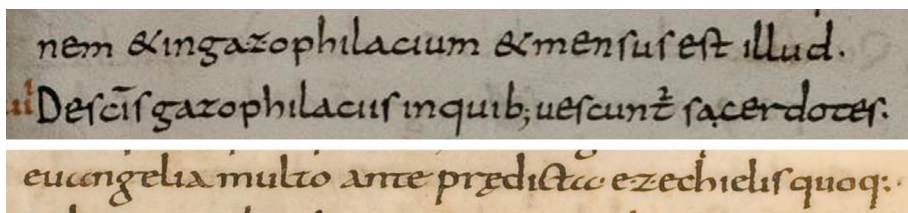 nem & ingazophilacium & mensus est illud.
Desc̄is gazophilaciis inquib; uescunt᷑ sacerdotes.
euangelia multo ante prędicta ezechielis quoq: